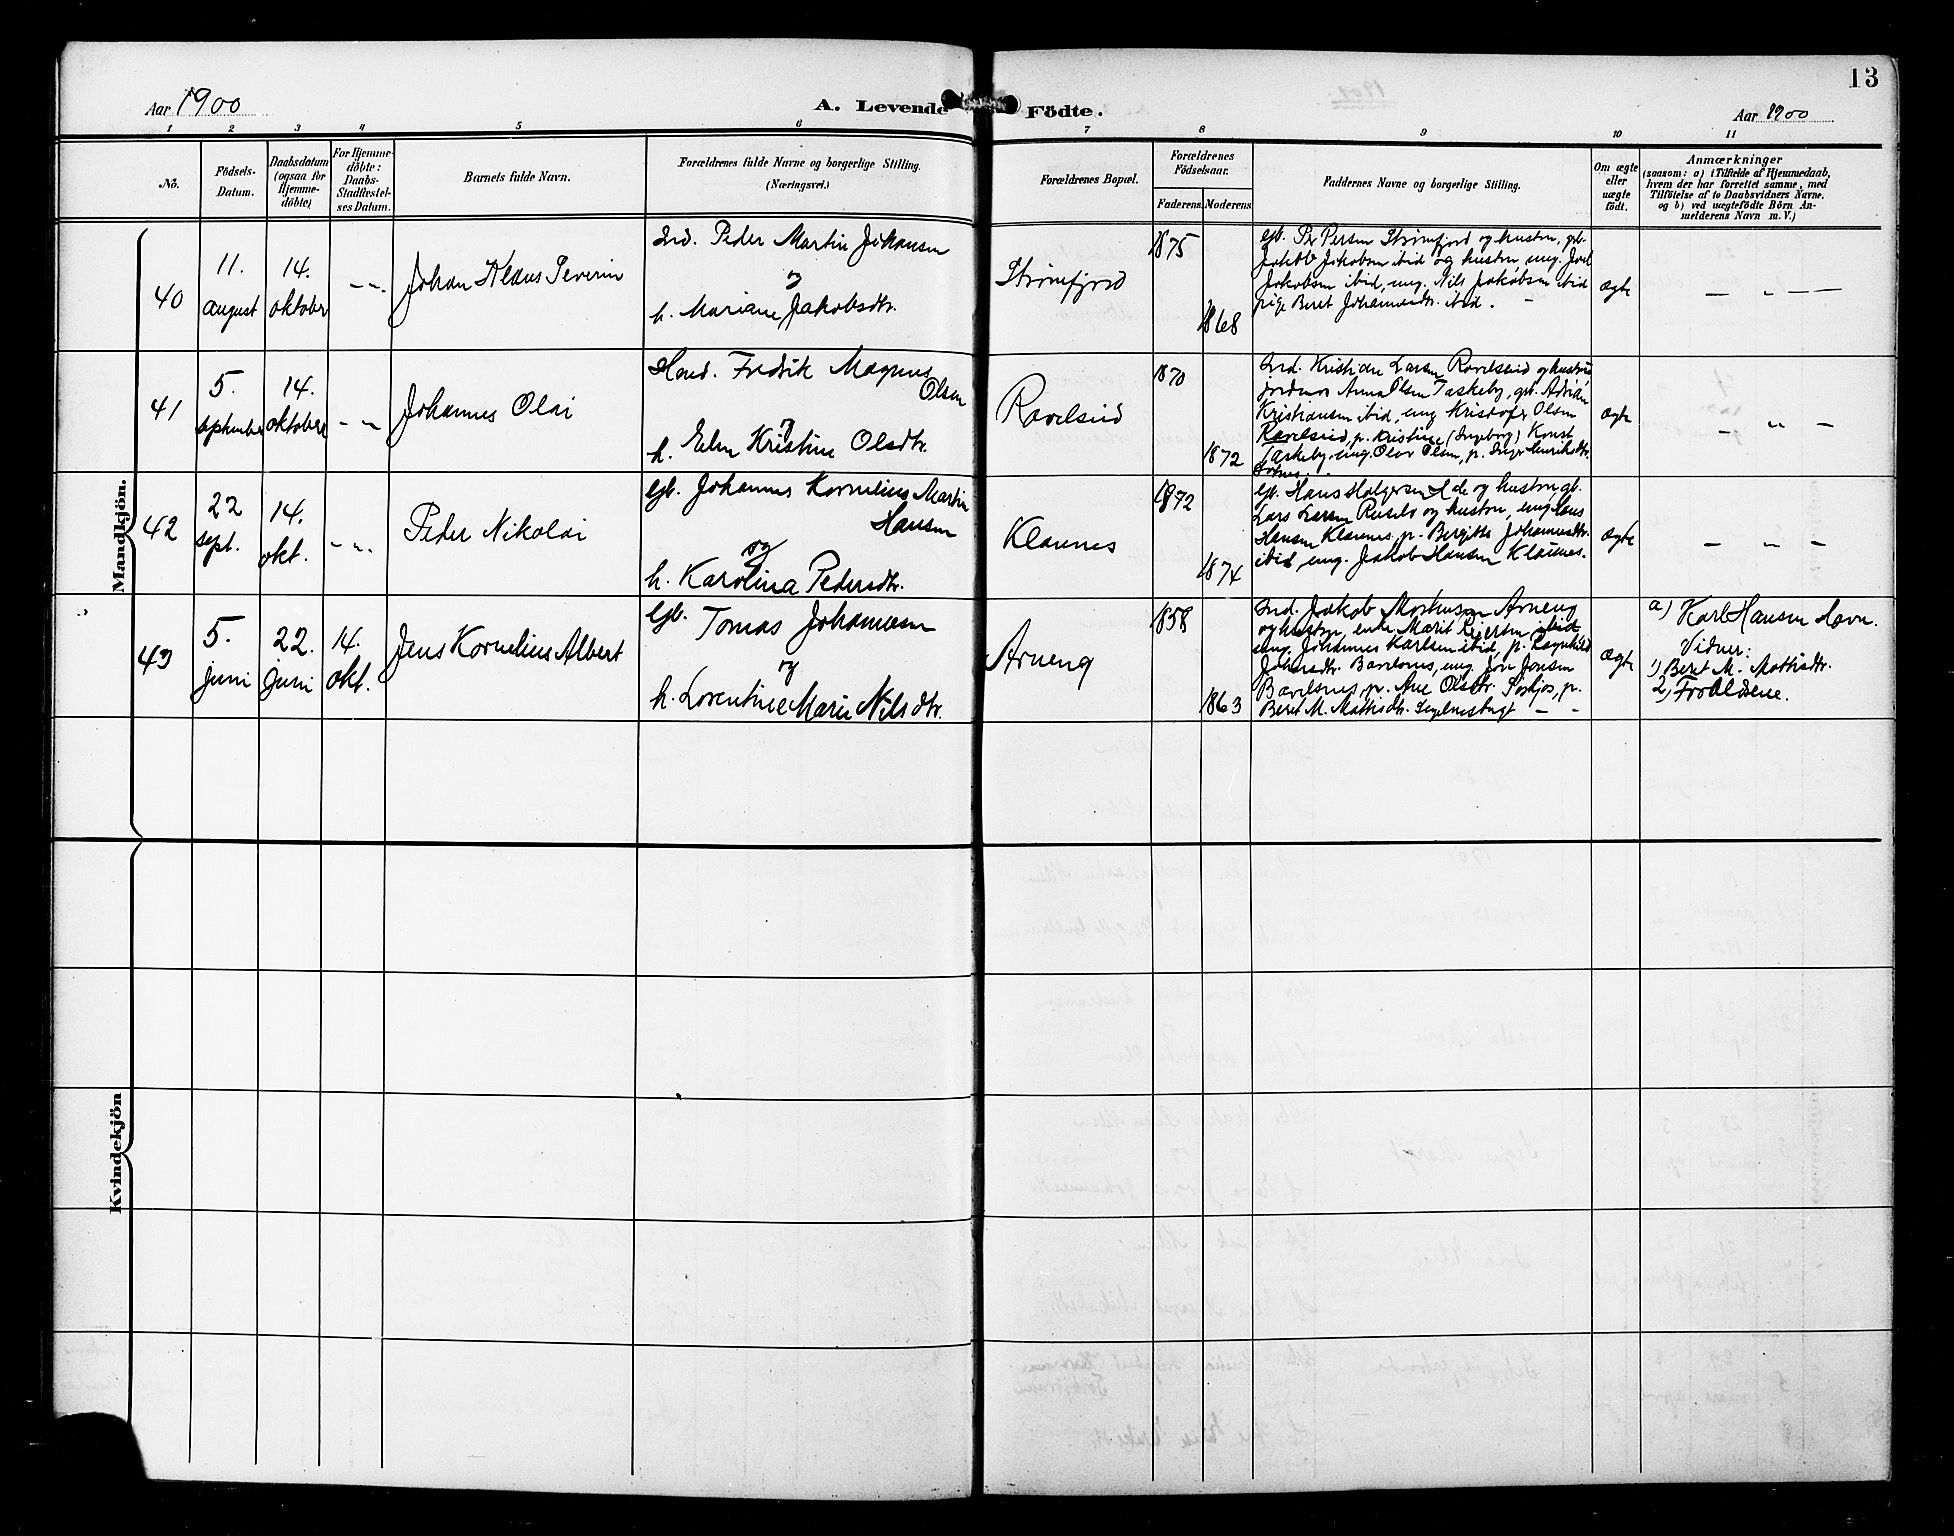 13
Aar 1900
A. Levende Födte.
Aar 1900
1 2 3 4 5 6 7 8 9 10 11
No.
Födsels-
Datum.
Daabsdatum
(ogsaa för
Hjemme-
döbte)
For Hjemme-
döbte:
Daabs-
Stadfæstel-
ses Datum.
Barnets fulde Navn.
Forældrenes fulde Navne og borgerlige Stilling.
(Næringsvei.)
Forældrenes Bopæl.
Forældrenes
Födselsaar.
Faderens. Moderens.
Faddernes Navne og borgerlige Stilling.
Om ægte
eller
uægte
födt.
Anmærkninger
(saasom: a) i Tilfælde af Hjemmedaab,
hvem der har forrettet samme, med
Tilföielse af to Daabsvidners Navne,
og b) ved uægtefödte Börn An-
melderens Navn m. V.)
Mandkjön.
40
11.
august
14.
oktober
- " -
Johan Klaus Peverin
Ind. Peder Martin Johansen
og
h. Mariane Jakobsdtr.
Strømfjord
1875
1868
gb. Pr Persen Strømfjord og hustru, gb.
Jakob Jakobsen ibid og hustru ung. Joel
Jakobsen ibid, ung. Nils Jakobsen ibid
pige Beret Johannesdtr. ibid. -
ægte
- " - -
41
5.
september
14.
oktober
- " -
Johannes Olai
Hand. Fredrik Magnus
Olsen
og
h. Elen Kristine Olsdtr.
Ravelseid
1870
1872
Ind. Kristian Larsen Ravelseid og hustru
jordmor Anna Olsen Taskeby, gb. Adrian
Kristiansen ibid, ung Kristofer Olsen
Ravelseid, p. Kristine (Ingeborg) Konst
Taskeby ung. Olav Olsen, p. Inger Henriksdtr.
ægte
- " -
42
22
sept.
14.
okt.
- " -
Peder Nikolai
gb. Johannes Kornelius Martin
Hansen
og
h. Karolina Pedersdtr.
Klaunes
1872
1874
gb. Hans Holgersen og hustru, gb.
Lars Larsen og hustru, ung Hans
Hansen Klaunes, p. Bergitte Johannesdtr.
ibid, ung. Jakob Hansen Klaunes.
ægte
- " -
43
5.
juni
22.
juni
14.
okt.
Jens Kornelius Albert
gb. Tomas Johannesen
og
h. Lorentine Marie Nilsdtr.
Arneng
1858
1863
Ind. Jakob Mortensen Arneng
og hustru, enke Marit ibid
ung. Johannes Karlsen ibid, p. Ragnhild
Johansdtr. Bavelsnes, ung. Jon Jonsen
Bavelsnes, p. Ane Olsdtr. p.
Beret M. Mattisdtr. Segelnesbugt - -
ægte
a) Karl Hansen Havn.
Vidner:
1) Beret M. Mattisdtr.
2)
Kvindekjön